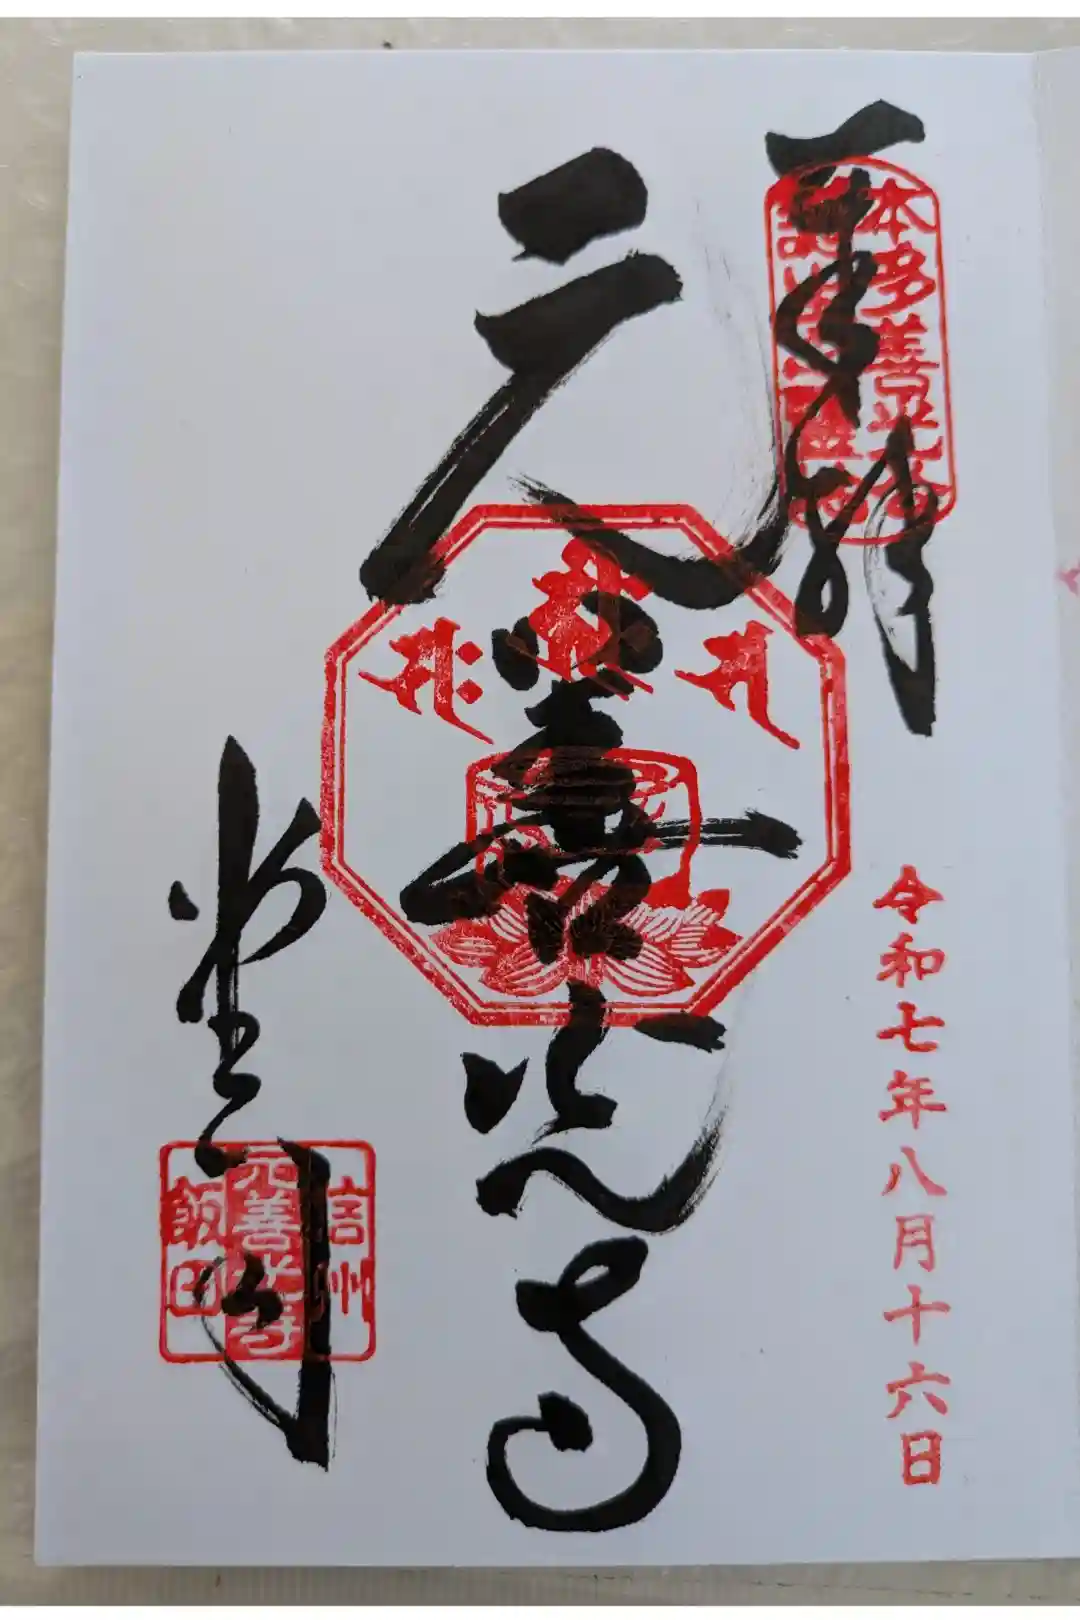 奉拝
本多善光
令和七年八月十六日
元善光寺
信州
元善光寺
飯田